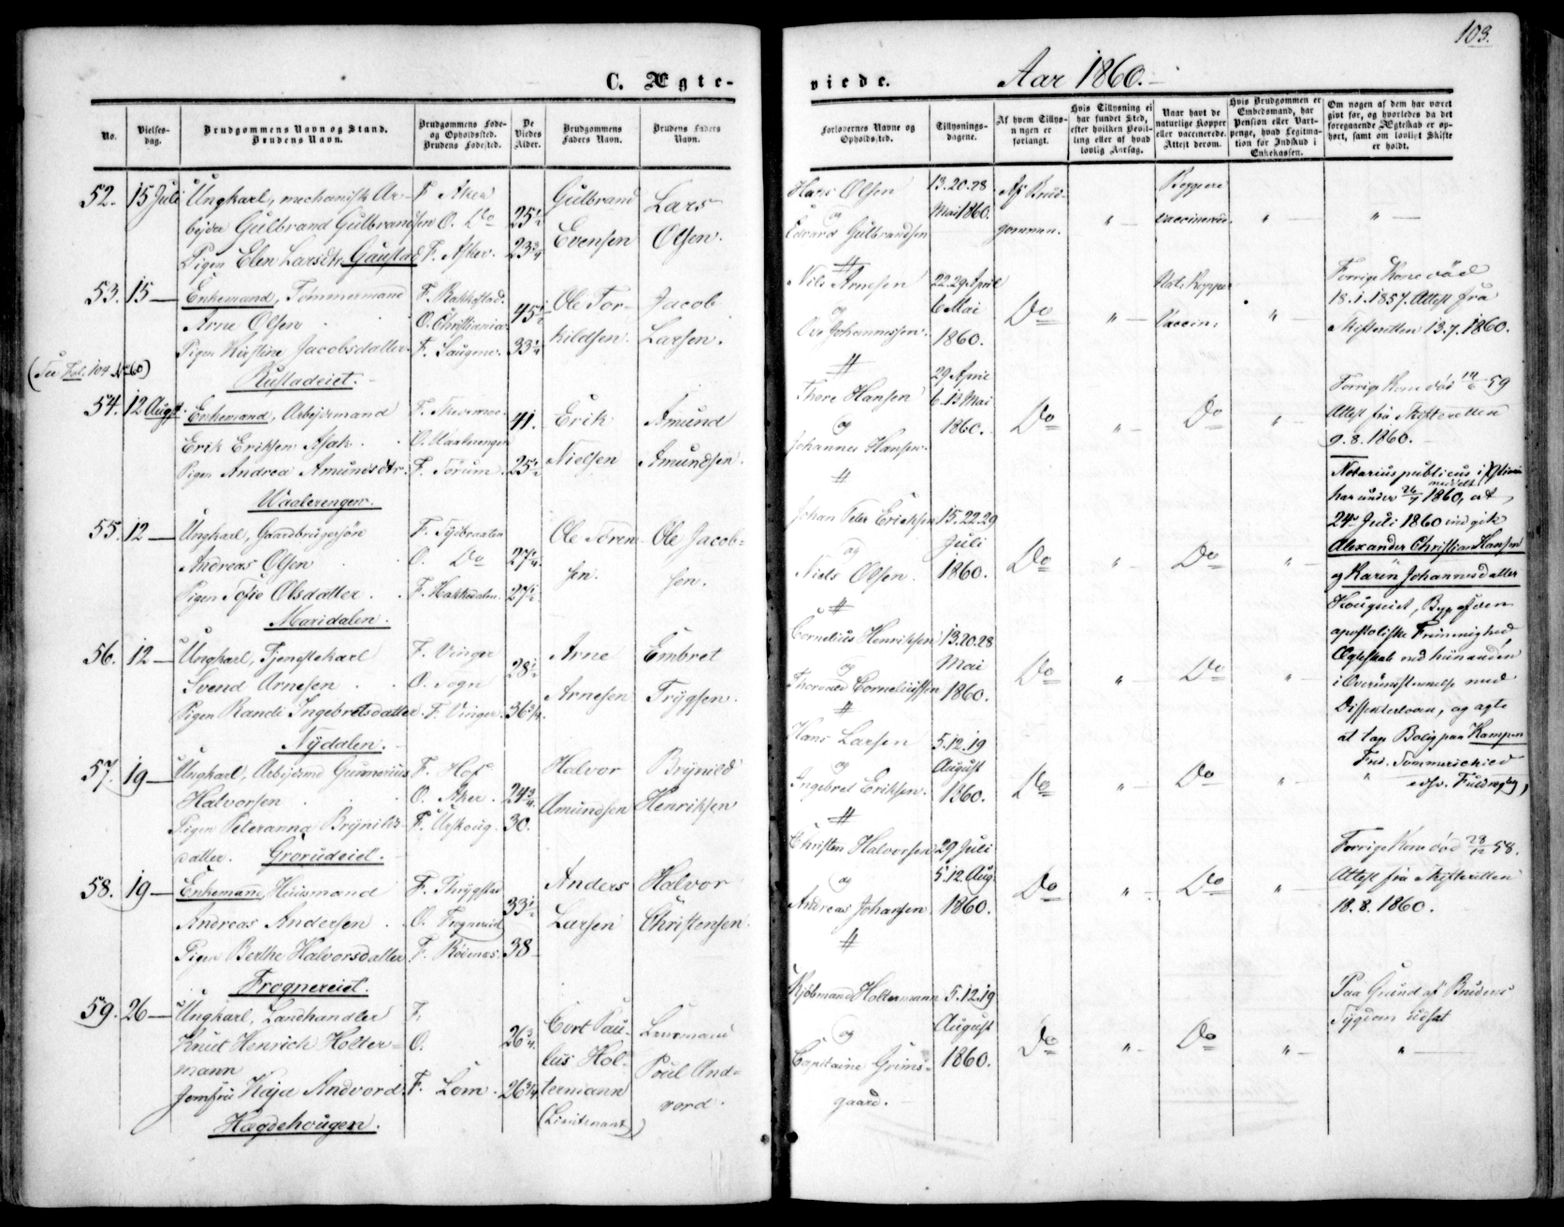 103.
C. Ægteviede.
Aar 1860.
No.
Vielses-
dag.
Brudgommens Navn og Stand.
Brudens Navn.
Brudgommens Føde-
og Opholdssted.
Brudens Fødested.
De
Viedes
Alder.
Brudgommens
Faders Navn.
Brudens Faders
Navn.
Forlovernes Navne og
Opholdssted.
Tillysnings-
dagene.
Af hvem Tillys-
ningen er
forlangt.
Hvis Tillysning ei
har fundet Sted,
efter hvilken Bevil-
ling eller af hvad
lovlig Aarsag.
Naar havt de
naturlige Kopper
eller vaccinerede.
Attest derom.
Hvis Brudgommen er
Embedsmand, har
Pension eller Vart-
penge, hvad Legitima-
tion for Indskud i
Enkekassen.
Om nogen af dem har været
givt før, og hvorledes da det
foregaaende Ægteskab er op-
hørt, samt om lovligt Skifte
er holdt.
52. 15 Juli
Ungkarl, mechanisk Ar-
bejder Gulbrand Gulbrandsen
Pigen Elen Larsdtr. Gaustad
F. Aker
O. Do
F. Asker.
25 1/2
23 3/4
Gulbrand
Evensen
Lars
Olsen.
Hans Olsen
og
Edvard Gulbrandsen
13.20.28
Mai 1860.
Af Brud-
gommen.
Begge
vaccinerede
53. 15 —
Enkemand, Tømmermand
Arne Olsen
Pigen Kirstine Jacobsdatter
Rustadeiet.
F. Rakkestad.
O. Christiania
F. Saugnæ.
45 1/2
33 1/4
Ole Tor-
kildsen.
Jacob
Larsen.
Nils Arnesen
og
Ole Johannessen.
22.29 April
6 Mai
1860.
Do
Nat. Kopper
Vaccin:
Forrige Kone død
18.1.1857. Attest fra
Skifteretten 13.7.1860.
(See Fol. 104 No 60)
54. 12 Augst.
Enkemand, Arbejdsmand
Erik Eriksen Asak
Pigen Andrea Amundsdtr.
Waalerengen.
O. Vaalerengen
F. Sørum.
41.
25 1/2
Erik
Nielsen
Amund
Amundsen.
Thore Hansen
og
Johannes Hansen.
29 April
6.13 Mai
1860.
Do
Do
Forrige Kone død 14/6 59
Attest fra Skifteretten
9.8.1860.
55. 12 —
Ungkarl, Gaardbrugersøn
Andreas Olsen
Pigen Sofie Olsdatter
Maridalen.
O. Do
F. Hakkedalen.
27 1/4
27 1/2
Ole Søren-
sen.
Ole Jacob-
sen.
Johan Peter Erichsen
og
Niels Olsen.
15.22.29
Juli
1860.
Do
Do
Notarius publicus i Xstiania
har under 26/7 1860, meddelt at
24de Juli 1860 indgik
Alexander Christian Hansen
og Karen Johannesdatter
apostoliske Frimenighed,
Ægteskab med hinanden
i Overensstemmelse med
Dissenterloven, og agte
at tage Bolig paa Kampen
56. 12 —
Ungkarl, Tjenestekarl
Svend Arnesen
Pigen Randi Ingebretsdatter
Nydalen.
F. Vinger
O. Sogn
F. Vinger.
28 1/2
36 3/4
Arne
Arnesen
Embret
Trygsen.
Cornelius Henriksen
og
Thorvald Corneliussen
13.20.28
Mai
1860.
Do
Do
57. 19 —
Ungkarl, Arbejdsmd Gunnerius
Halvorsen
Pigen Peteranna Brynilds-
datter. Grorudeiet.
F. Hof
O. Aker.
F. Urskoug.
24 3/4
30.
Halvor
Amundsen
Brynild
Henriksen
Hans Larsen
og
Ingebret Eriksen.
5.12.19
August
1860.
Do
Do
58. 19 —
Enkemand, Huusmand
Andreas Andersen
Pigen Berthe Halvorsdatter
Frognereiet.
F. Thrygstad
O. Frogneriet
F. Rødenæs.
33 1/2
38 —
Anders
Larsen
Halvor
Christensen.
Christen Halvorsen
og
Andreas Johansen
29 Juli
5.12. Aug.
1860.
Do
Do
Forrige Kone død 28/12 58.
Attest fra Skifteretten
18.8.1860.
59. 26 —
Ungkarl, Landhandler
Knut Henrich Holter-
mann
Jomfru Kaja Andvord.
Hægdehougen.
F.
O.
F. Lom.
26 3/4
26 3/4
Cort Pau-
lus Hol-
termann
(Lieutenant)
Lensmand
Poul And-
vord.
Kjøbmand Holtermann
og
Capitaine Grims-
gaard.
5.12.19
August
1860.
Do
Do
Paa Grund af Brudens
Sygdom udsat